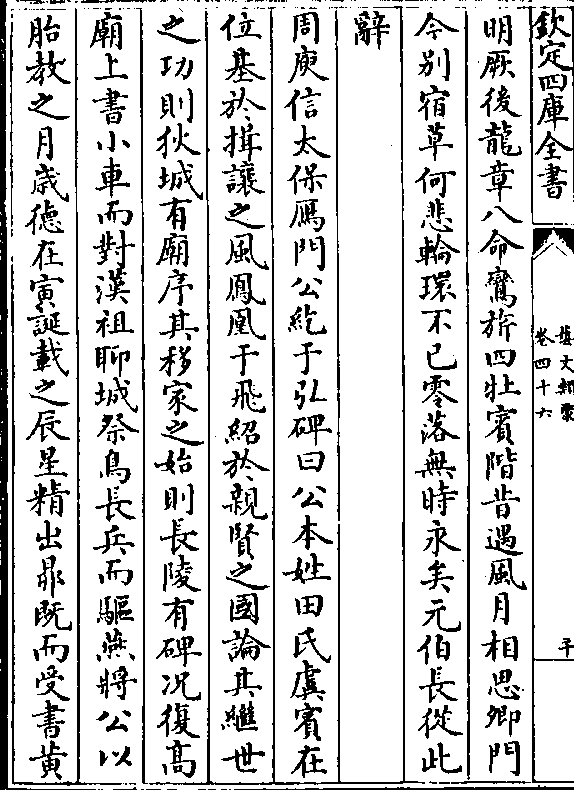 欽定四庫全書
藝文類聚
卷四十六
明厥後龍章八命鸞旂四牡賓階昔遇風月相思卿門
今别宿草何悲輪環不已零落無時永矣元伯長從此
辭
周庾信太保鴈門公紇于弘碑曰公本姓田氏虞賓在
位基於揖讓之風鳳凰于飛紹於親賢之國論其繼世
之功則狄城有廟序其移家之始則長陵有碑况復高
廟上書小車而對漢祖聊城祭鳥長兵而驅燕將公以
胎教之月歳德在寅誕載之辰星精出昴既而受書黄